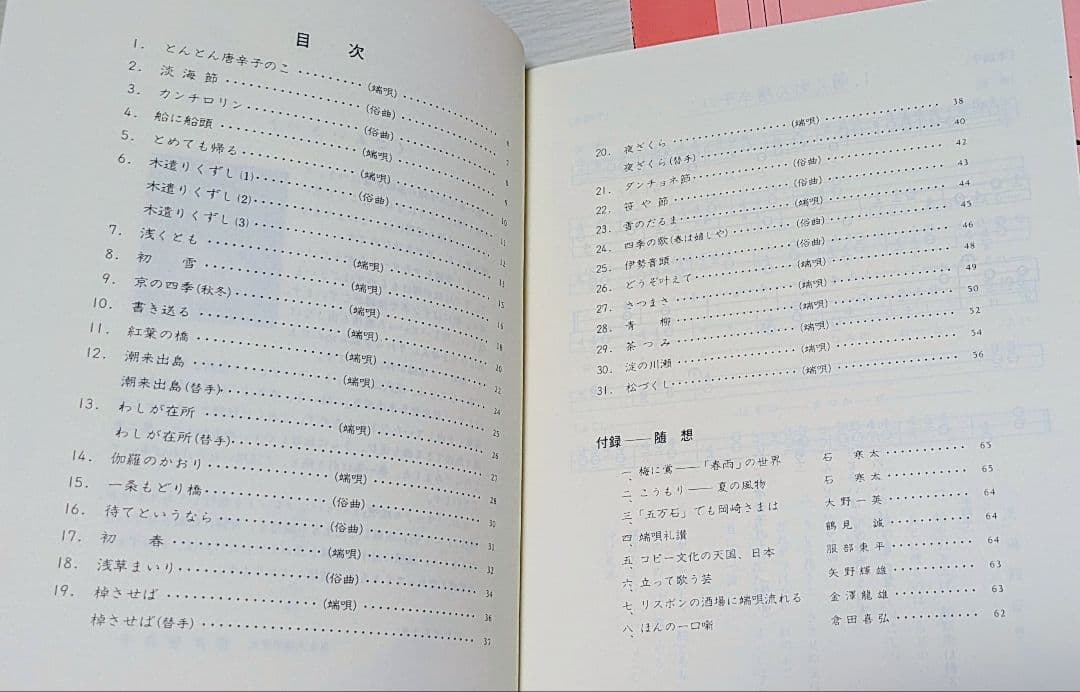 目 次
1. とんとん唐辛子のこ ‥‥‥‥(端唄)‥‥‥‥
2. 淡海節 ‥‥‥‥(俗曲)‥‥‥‥ 7
3. カンチロリン ‥‥‥‥(俗曲)‥‥‥‥ 8
4. 船に船頭 ‥‥‥‥(端唄)‥‥‥‥ 9
5. とめても帰る ‥‥‥‥(端唄)‥‥‥‥ 10
6. 木遣りくずし(1)‥‥‥‥(俗曲)‥‥‥‥ 11
木遣りくずし(2)‥‥‥‥ 12
木遣りくずし(3)‥‥‥‥ 13
7. 浅くとも ‥‥‥‥(端唄)‥‥‥‥ 15
8. 初 雪 ‥‥‥‥(端唄)‥‥‥‥ 16
9. 京の四季(秋冬)‥‥‥‥(端唄)‥‥‥‥ 18
10. 書き送る ‥‥‥‥(端唄)‥‥‥‥ 20
11. 紅葉の橋 ‥‥‥‥(端唄)‥‥‥‥ 22
12. 潮来出島 ‥‥‥‥(端唄)‥‥‥‥ 24
潮来出島(替手)‥‥‥‥ 25
13. わしが在所 ‥‥‥‥(端唄)‥‥‥‥ 26
わしが在所(替手)‥‥‥‥ 27
14. 伽羅のかおり ‥‥‥‥(端唄)‥‥‥‥ 28
15. 一条もどり橋 ‥‥‥‥(俗曲)‥‥‥‥ 30
16. 待てというなら ‥‥‥‥(俗曲)‥‥‥‥ 31
17. 初 春 ‥‥‥‥(端唄)‥‥‥‥ 32
18. 浅草まいり ‥‥‥‥(俗曲)‥‥‥‥ 34
19. 棹させば ‥‥‥‥(端唄)‥‥‥‥ 36
棹させば(替手)‥‥‥‥ 37
20. 夜ざくら ‥‥‥‥(端唄)‥‥‥‥ 38
夜ざくら(替手)‥‥‥‥ 40
21. ダンチョネ節 ‥‥‥‥(俗曲)‥‥‥‥ 42
22. 笹や節 ‥‥‥‥(俗曲)‥‥‥‥ 43
23. 雪のだるま ‥‥‥‥(端唄)‥‥‥‥ 44
24. 四季の歌(春は嬉しや)‥‥‥‥(俗曲)‥‥‥‥ 45
25. 伊勢音頭 ‥‥‥‥(俗曲)‥‥‥‥ 46
26. どうぞ叶えて ‥‥‥‥(端唄)‥‥‥‥ 48
27. さつまさ ‥‥‥‥(端唄)‥‥‥‥ 49
28. 青 柳 ‥‥‥‥(端唄)‥‥‥‥ 50
29. 茶つみ ‥‥‥‥(端唄)‥‥‥‥ 52
30. 淀の川瀬 ‥‥‥‥(端唄)‥‥‥‥ 54
31. 松づくし ‥‥‥‥(端唄)‥‥‥‥ 56
付録──随 想
一、梅に鶯──「春雨」の世界 石 寒太 ‥‥‥‥ 65
二、こうもり──夏の風物 石 寒太 ‥‥‥‥ 65
三、「五万石」でも岡崎さまは 大野一英 ‥‥‥‥ 64
四、端唄礼讃 鶴見 誠 ‥‥‥‥ 64
五、コピー文化の天国、日本 服部東平 ‥‥‥‥ 64
六、立って歌う芸 矢野輝雄 ‥‥‥‥ 63
七、リスボンの酒場に端唄流れる 金澤龍雄 ‥‥‥‥ 63
八、ほんの一口噺 倉田喜弘 ‥‥‥‥ 62